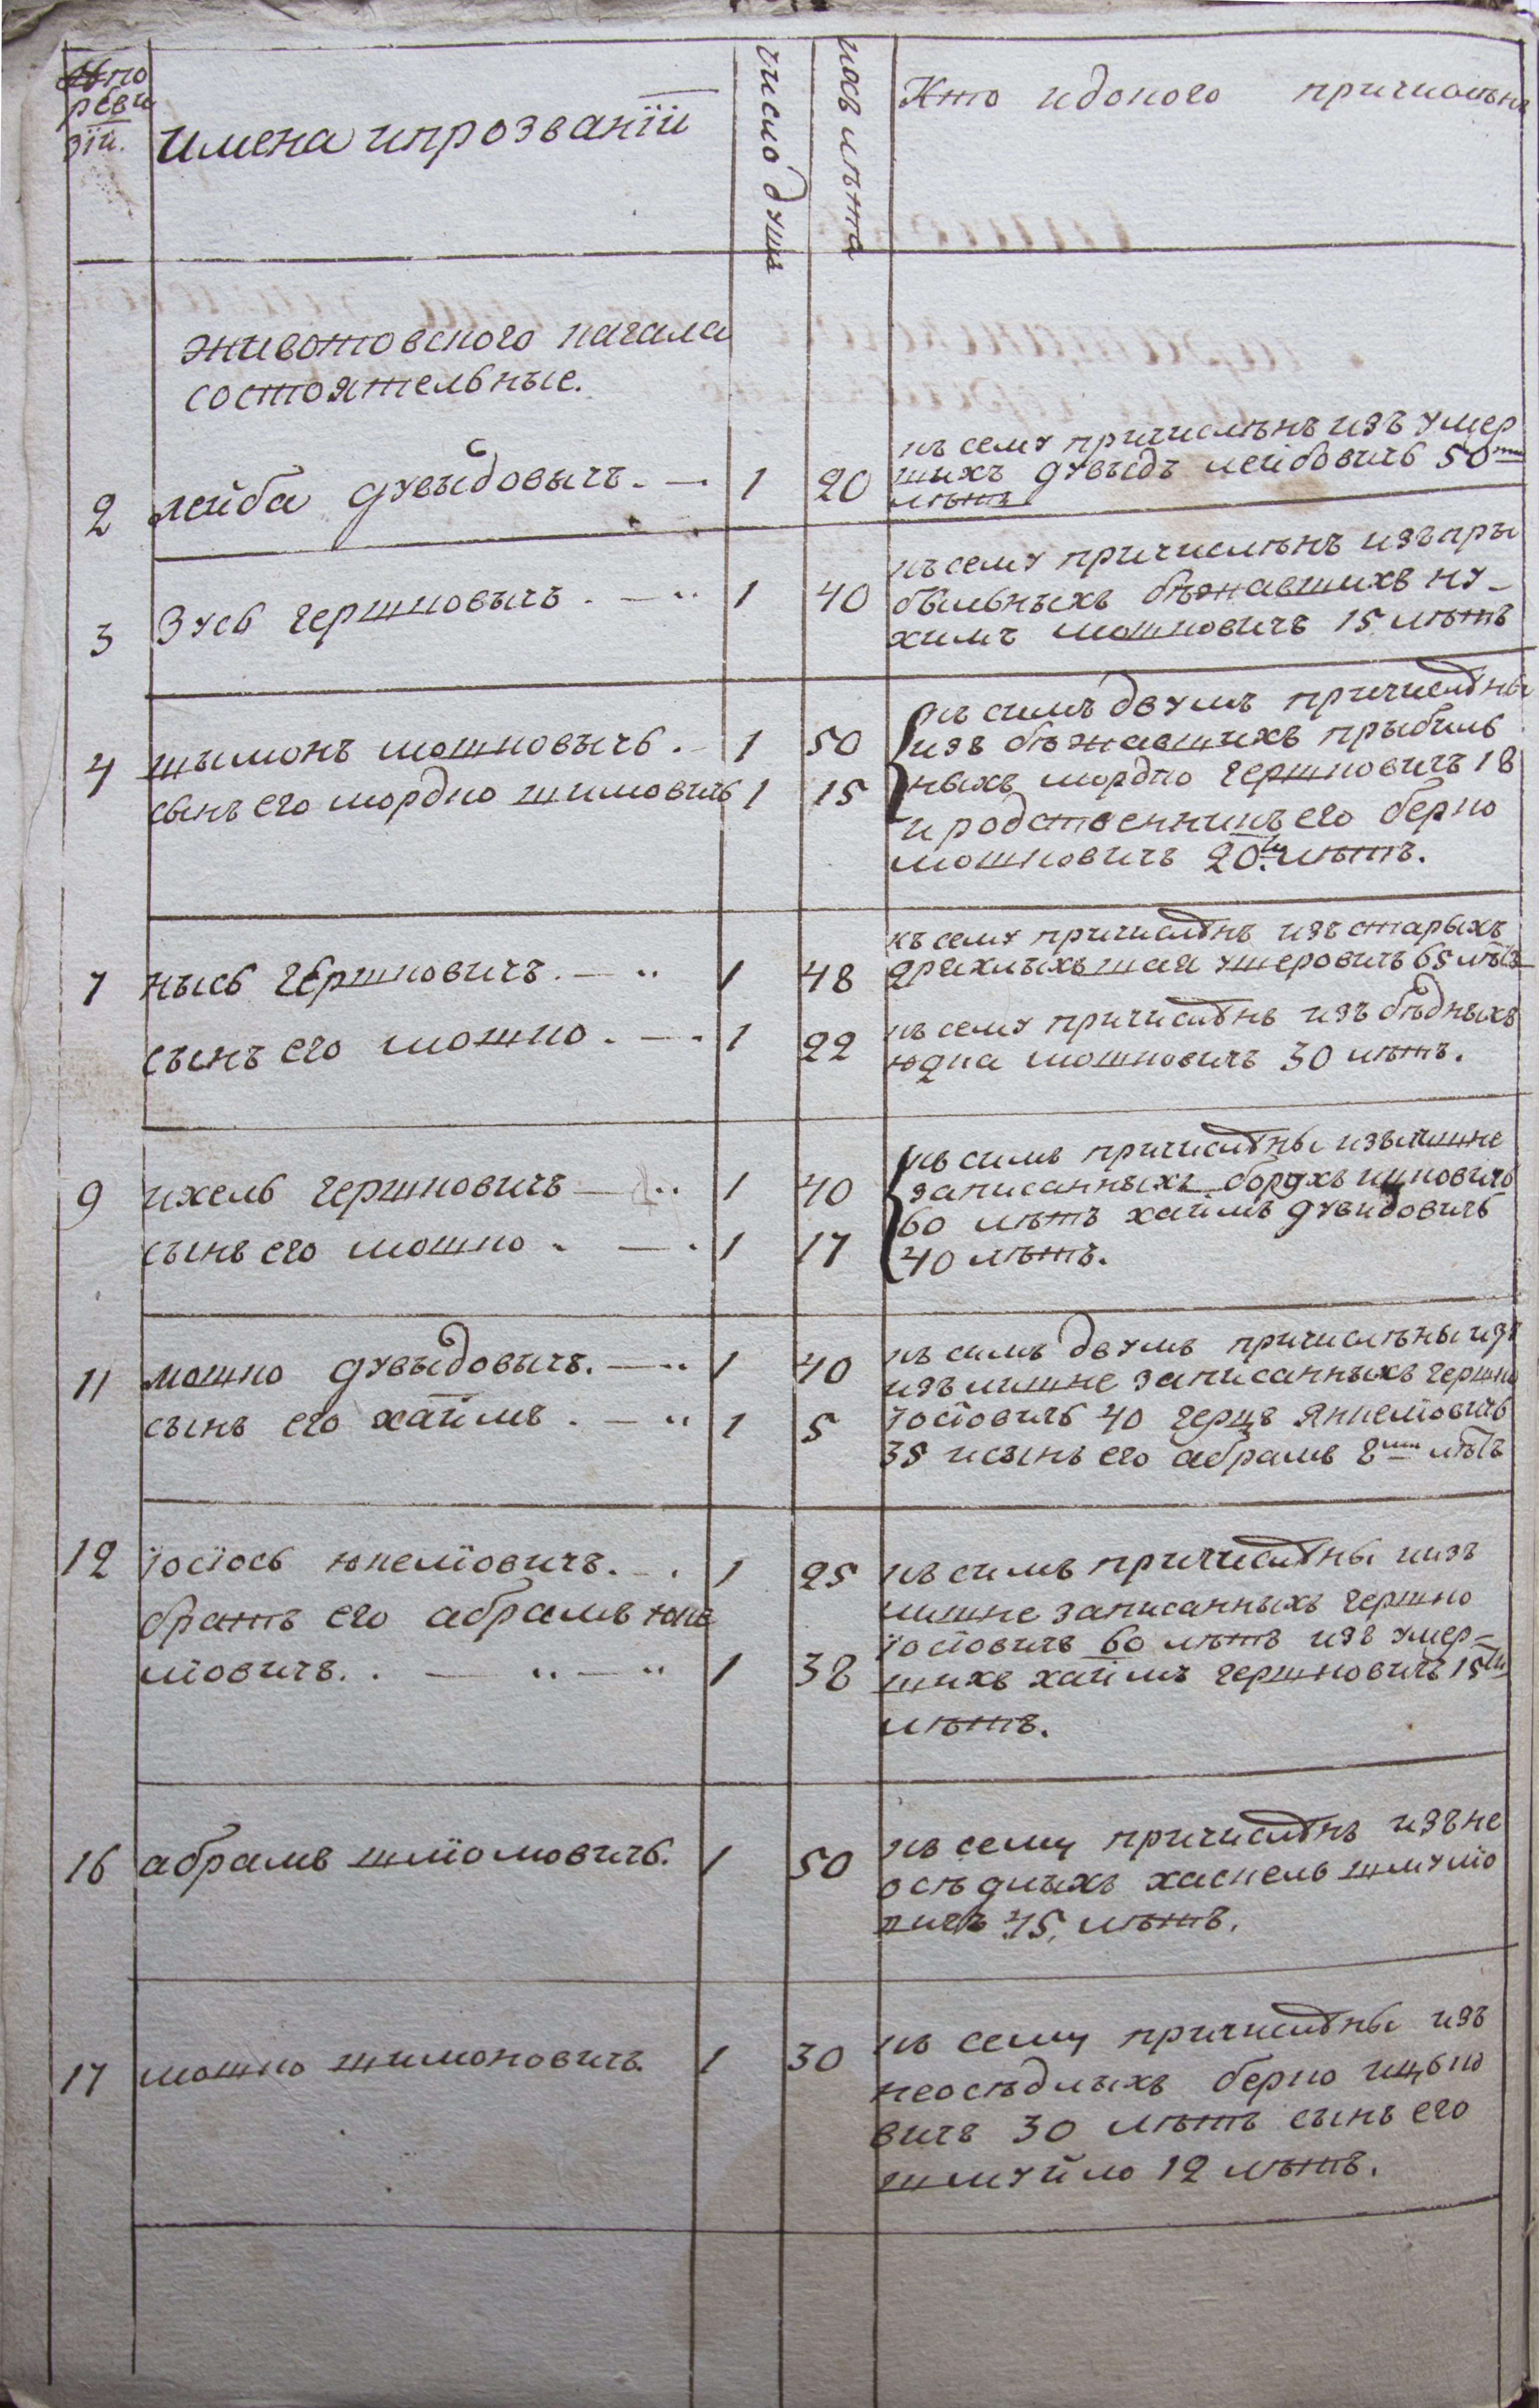 № по
реви
зїи.
имена ипрозванїи
число душъ
коъ лѣта
Кто идоного причиольнъ
животовского кагала
состоятельные.
2 лейба дувыдовычъ. — 1 20
къ сему причислѣнъ изъ умер
шихъ дувыдъ лейбовичь 50ти
лѣтъ
3 Зусь гершковычъ. — 1 40
къ сему причислѣнъ изъ пры
быльныхъ бѣжавшихъ ну-
химъ мошковичъ 15 лѣтъ
4 шымонъ мошковычъ. 1 50
сынъ его мордко шимовичъ 1 15
къ симъ двумъ причислѣны
изъ бѣжавшихъ прыбыль
ныхъ мордко гершковичъ 18
и родственникъ его берко
мошковичъ 20ти лѣтъ.
7 нысь гершковичъ. — 1 48
къ сему причислѣнъ изъ старыхъ
дряхлыхъ шая ушеровичъ 65 лѣтъ
сынъ его мошко. — 1 22
къ сему причислѣнъ изъ бѣдныхъ
юдка мошковичъ 30 лѣтъ.
9 ихель гершковичъ — 1 40
сынъ его мошко. — 1 17
къ симъ причислѣны изълишне
записанныхъ борухъ ицковичъ
60 лѣтъ хаимъ дувидовичъ
40 лѣтъ.
11 мошко дувыдовычъ. — 1 40
сынъ его хаїимъ. — 1 5
къ симъ двумъ причислѣны изъ
изъ лишне записанныхъ гершко
їосїовичъ 40 герцъ янкелїовичъ
35 и сынъ его абрамъ 8ми лѣтъ
12 їосїось юкелїовичъ. 1 25
братъ его абрамъ юке
лїовичъ. — 1 38
къ симъ причислѣны иизъ
лишне записанныхъ гершко
їосїовичъ 60 лѣтъ изъ умер-
шихъ хаимъ гершковичъ 15ти
лѣтъ.
16 абрамъ шлїомовичъ. 1 50
къ сему причислѣнъ изъ не
осѣдлыхъ хаскель шмулїо
вичъ 45 лѣтъ.
17 мошко шимоновичъ. 1 30
къ сему причислѣны изъ
неосѣдлыхъ берко ицько
вичъ 30 лѣтъ сынъ его
шмуйло 12 лѣтъ.